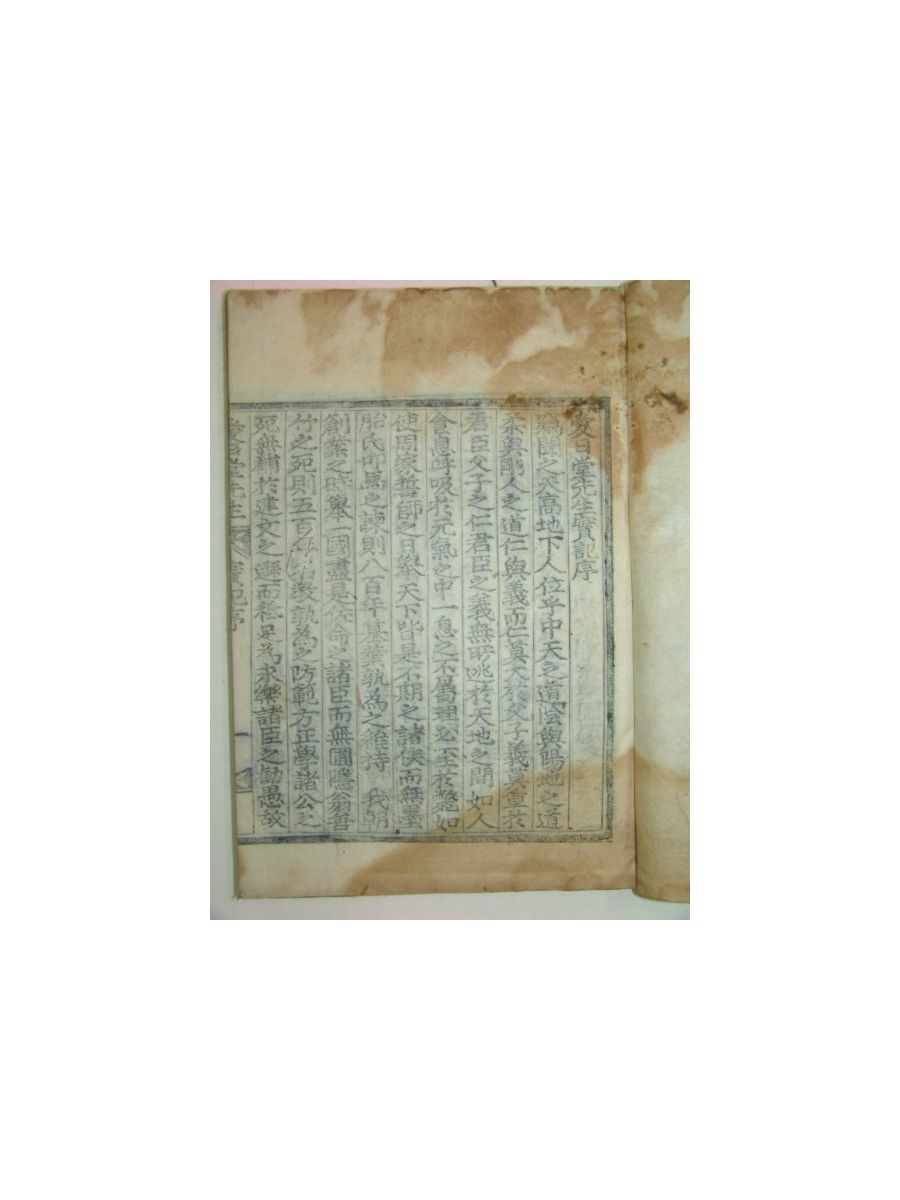 愛日堂先生實記序
竊聞之天高地下人位乎中天之道陰與陽地之道
柔與剛人之道仁與義而仁莫大於父子義莫重於
君臣父子之仁君臣之義無所逃於天地之間如人
食息呼吸於元氣之中一息之不屬理必至於斃如
使周家誓師之日舉天下皆是不期之諸侯而無墨
胎氏叩馬之諫則八百年基業孰為之維持 我朝
創業之時舉一國盡是佐命之諸臣而無圃隱翁善
竹之死則五百孰為之防範方正學諸公之
死無補於建文之遜而秪足為永樂諸臣之勸愚故
愛日堂先生實記序 一